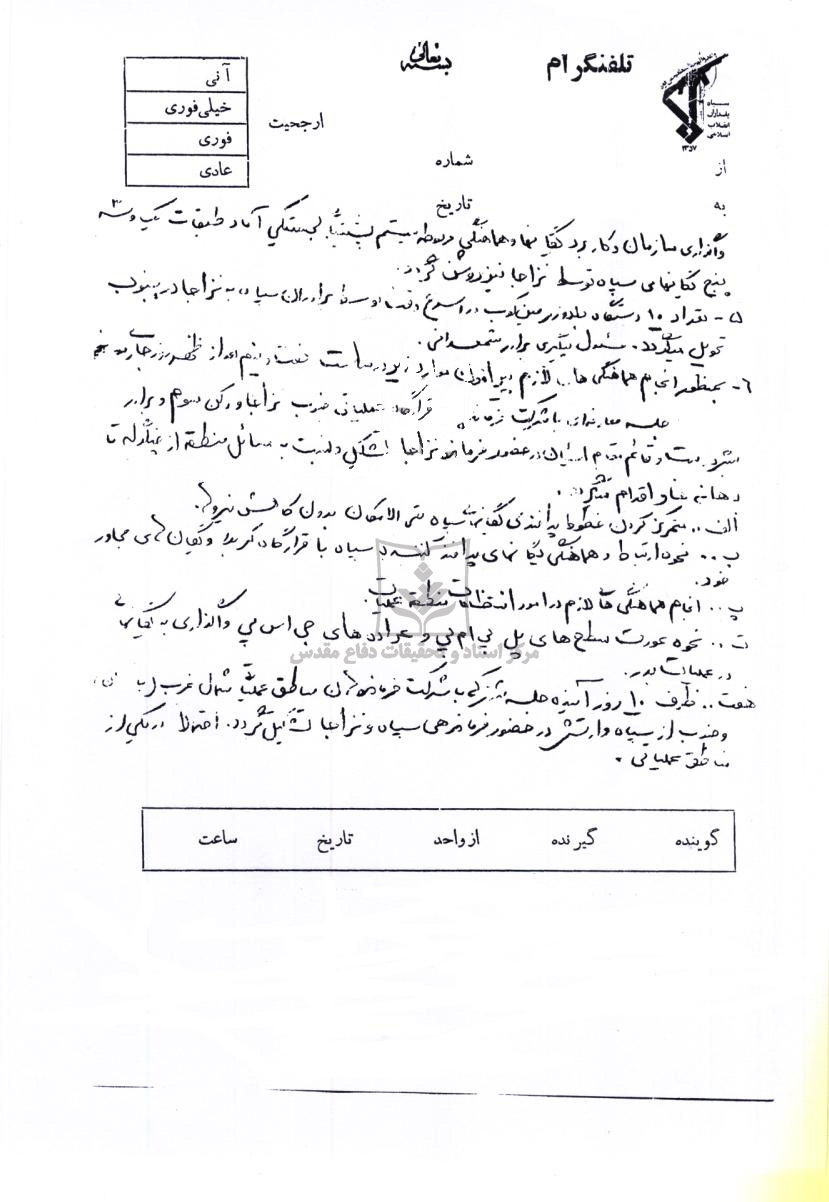 بسمه تعالی
تلفنگرام
سپاه
پاسداران
انقلاب
اسلامی
۱۳۵۷
ارجحیت
آنی
خیلی فوری
فوری
عادی
از
شماره
به
تاریخ
۳
واگذاری سازمان و کاربرد یگانها و هماهنگی سیستم آماد طبقات یک و سه
پنج یگانهای سپاه توسط نزاجا نیز روشن گردد.
۵- تعداد ۱۰ دستگاه بلدوزر در اسرع وقت توسط برادران سپاه به نزاجا در جنوب
تحویل میگردد. مسئول پیگیری برادر شمخانی.
۶- بمنظور انجام هماهنگی های لازم پیرامون موارد زیر در ساعت هفت و نیم بعد از ظهر روز جاری
جلسه با شرکت قرارگاه عملیاتی جنوب نزاجا و رکن سوم و برادر
در حضور فرمانده نزاجا تشکیل و نسبت به مسائل منطقه از تا
اقدام گردد.
الف.. متمرکز کردن خطوط پدافندی یگانهای سپاه حتی الامکان بدون کاهش نیرو.
ب.. نحوه ارتباط و هماهنگی یگانهای پدافند کننده سپاه با قرارگاه کربلا و یگانهای مجاور
خود.
پ.. انجام هماهنگی های لازم در امور انتظامات منطقه عملیات.
ت.. نحوه عودت سطح های پل پی ام پی و عراده های جی اس پی واگذاری به یگانها
در عملیات بدر.
هفت.. ظرف ۱۰ روز آینده جلسه مشترکی با شرکت فرماندهان مناطق عملیاتی شمال غرب
و جنوب از سپاه و ارتش در حضور فرماندهی سپاه و نزاجا تشکیل گردد. احتمالا در یکی از
مناطق عملیاتی.
مرکز اسناد و تحقیقات دفاع مقدس
گوینده
گیرنده
از واحد
تاریخ
ساعت